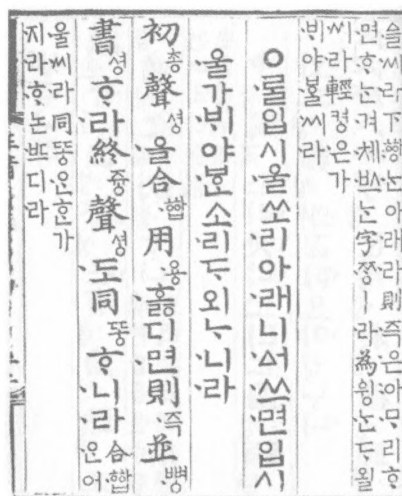 슬씨라下ᅘᅡᆼ는아래라則즉은아ᄆᆞ리ᄒᆞ
면ᄒᆞᄂᆞᆫ겨체ᄡᅳ는字ᄍᆞᆼㅣ라爲윙ᄂᆞᆫᄃᆞ욀
씨라輕켱은가
ᄇᆡ야ᄫᆞᆯ씨라
ㅇᄅᆞᆯ입시울쏘리아래니ᅀᅥ쓰면입시
울가ᄇᆡ야ᄫᆞᆫ소리ᄃᆞ외ᄂᆞ니라
初총聲셩을合ᅘᅡᆸ用용홇디면則즉並뼝
書셩ᄒᆞ라終즁聲셩도同똥ᄒᆞ니라合ᅘᅡᆸ은어
울씨라同똥은ᄒᆞᆫ가
지라ᄒᆞ논ᄠᅳ디라